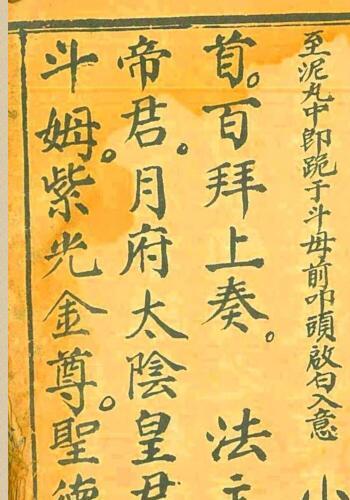 至泥丸中即跪于斗母前叩頭啟白入意
首。百拜上奏。 法主
帝君。月府太陰皇君
斗姆。紫光金尊。聖德